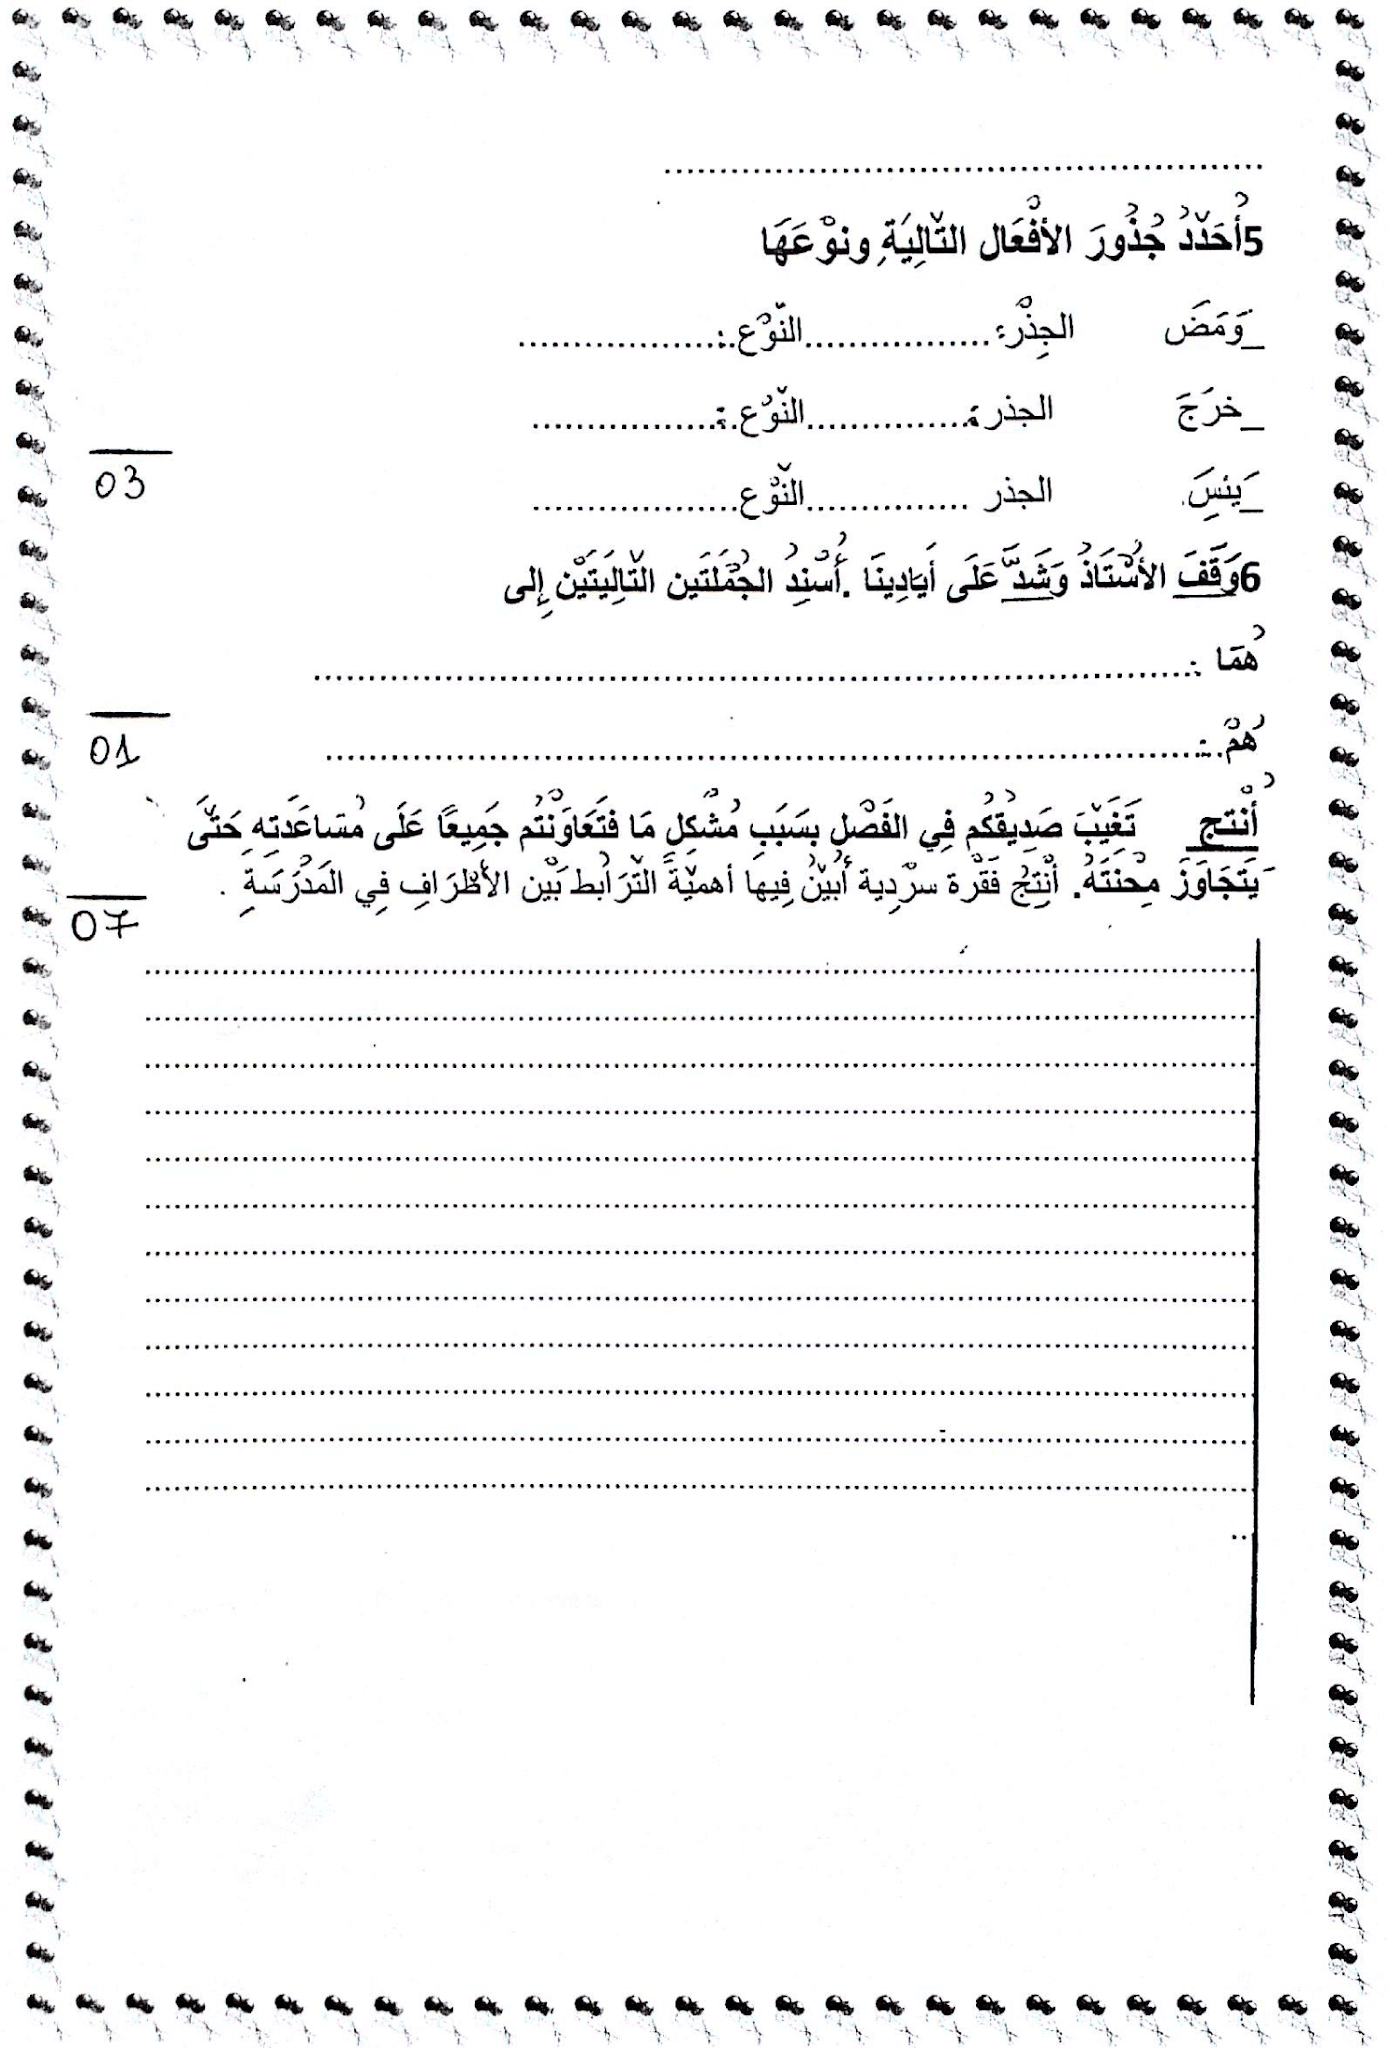 5أُحَدّدُ جُذُورَ الأفْعَال التّالِيَةِ ونوْعَهَا
_وَمَضَ الجِذْر: ................النّوْع :.................
_خرَجَ الجذر :...............النّوْع :.................
_يَئِسَ الجذر ...............النّوْع..................
03
6وَقَفَ الأسْتَاذُ وَشَدَّ عَلَى أيَادِينَا .أُسْنِدُ الجُمْلَتَين التّالِيَتَيْن إِلى
هُمَا :................................................
هُمْ :................................................
01
أُنْتج تَغَيّبَ صَدِيقُكُم فِي الفَصْل بسَبَبِ مُشْكِلٍ مَا فتَعَاوَنْتُم جَمِيعًا عَلَى مُسَاعَدَتِه حَتّى
يَتَجَاوَزَ مِحْنتَهُ. أُنْتِجُ فَقْرة سرْدِية أبَيّنُ فِيهَا أهميّةَ التّرَابُط بَيْن الأطْرَافِ فِي المَدْرَسَةِ .
07